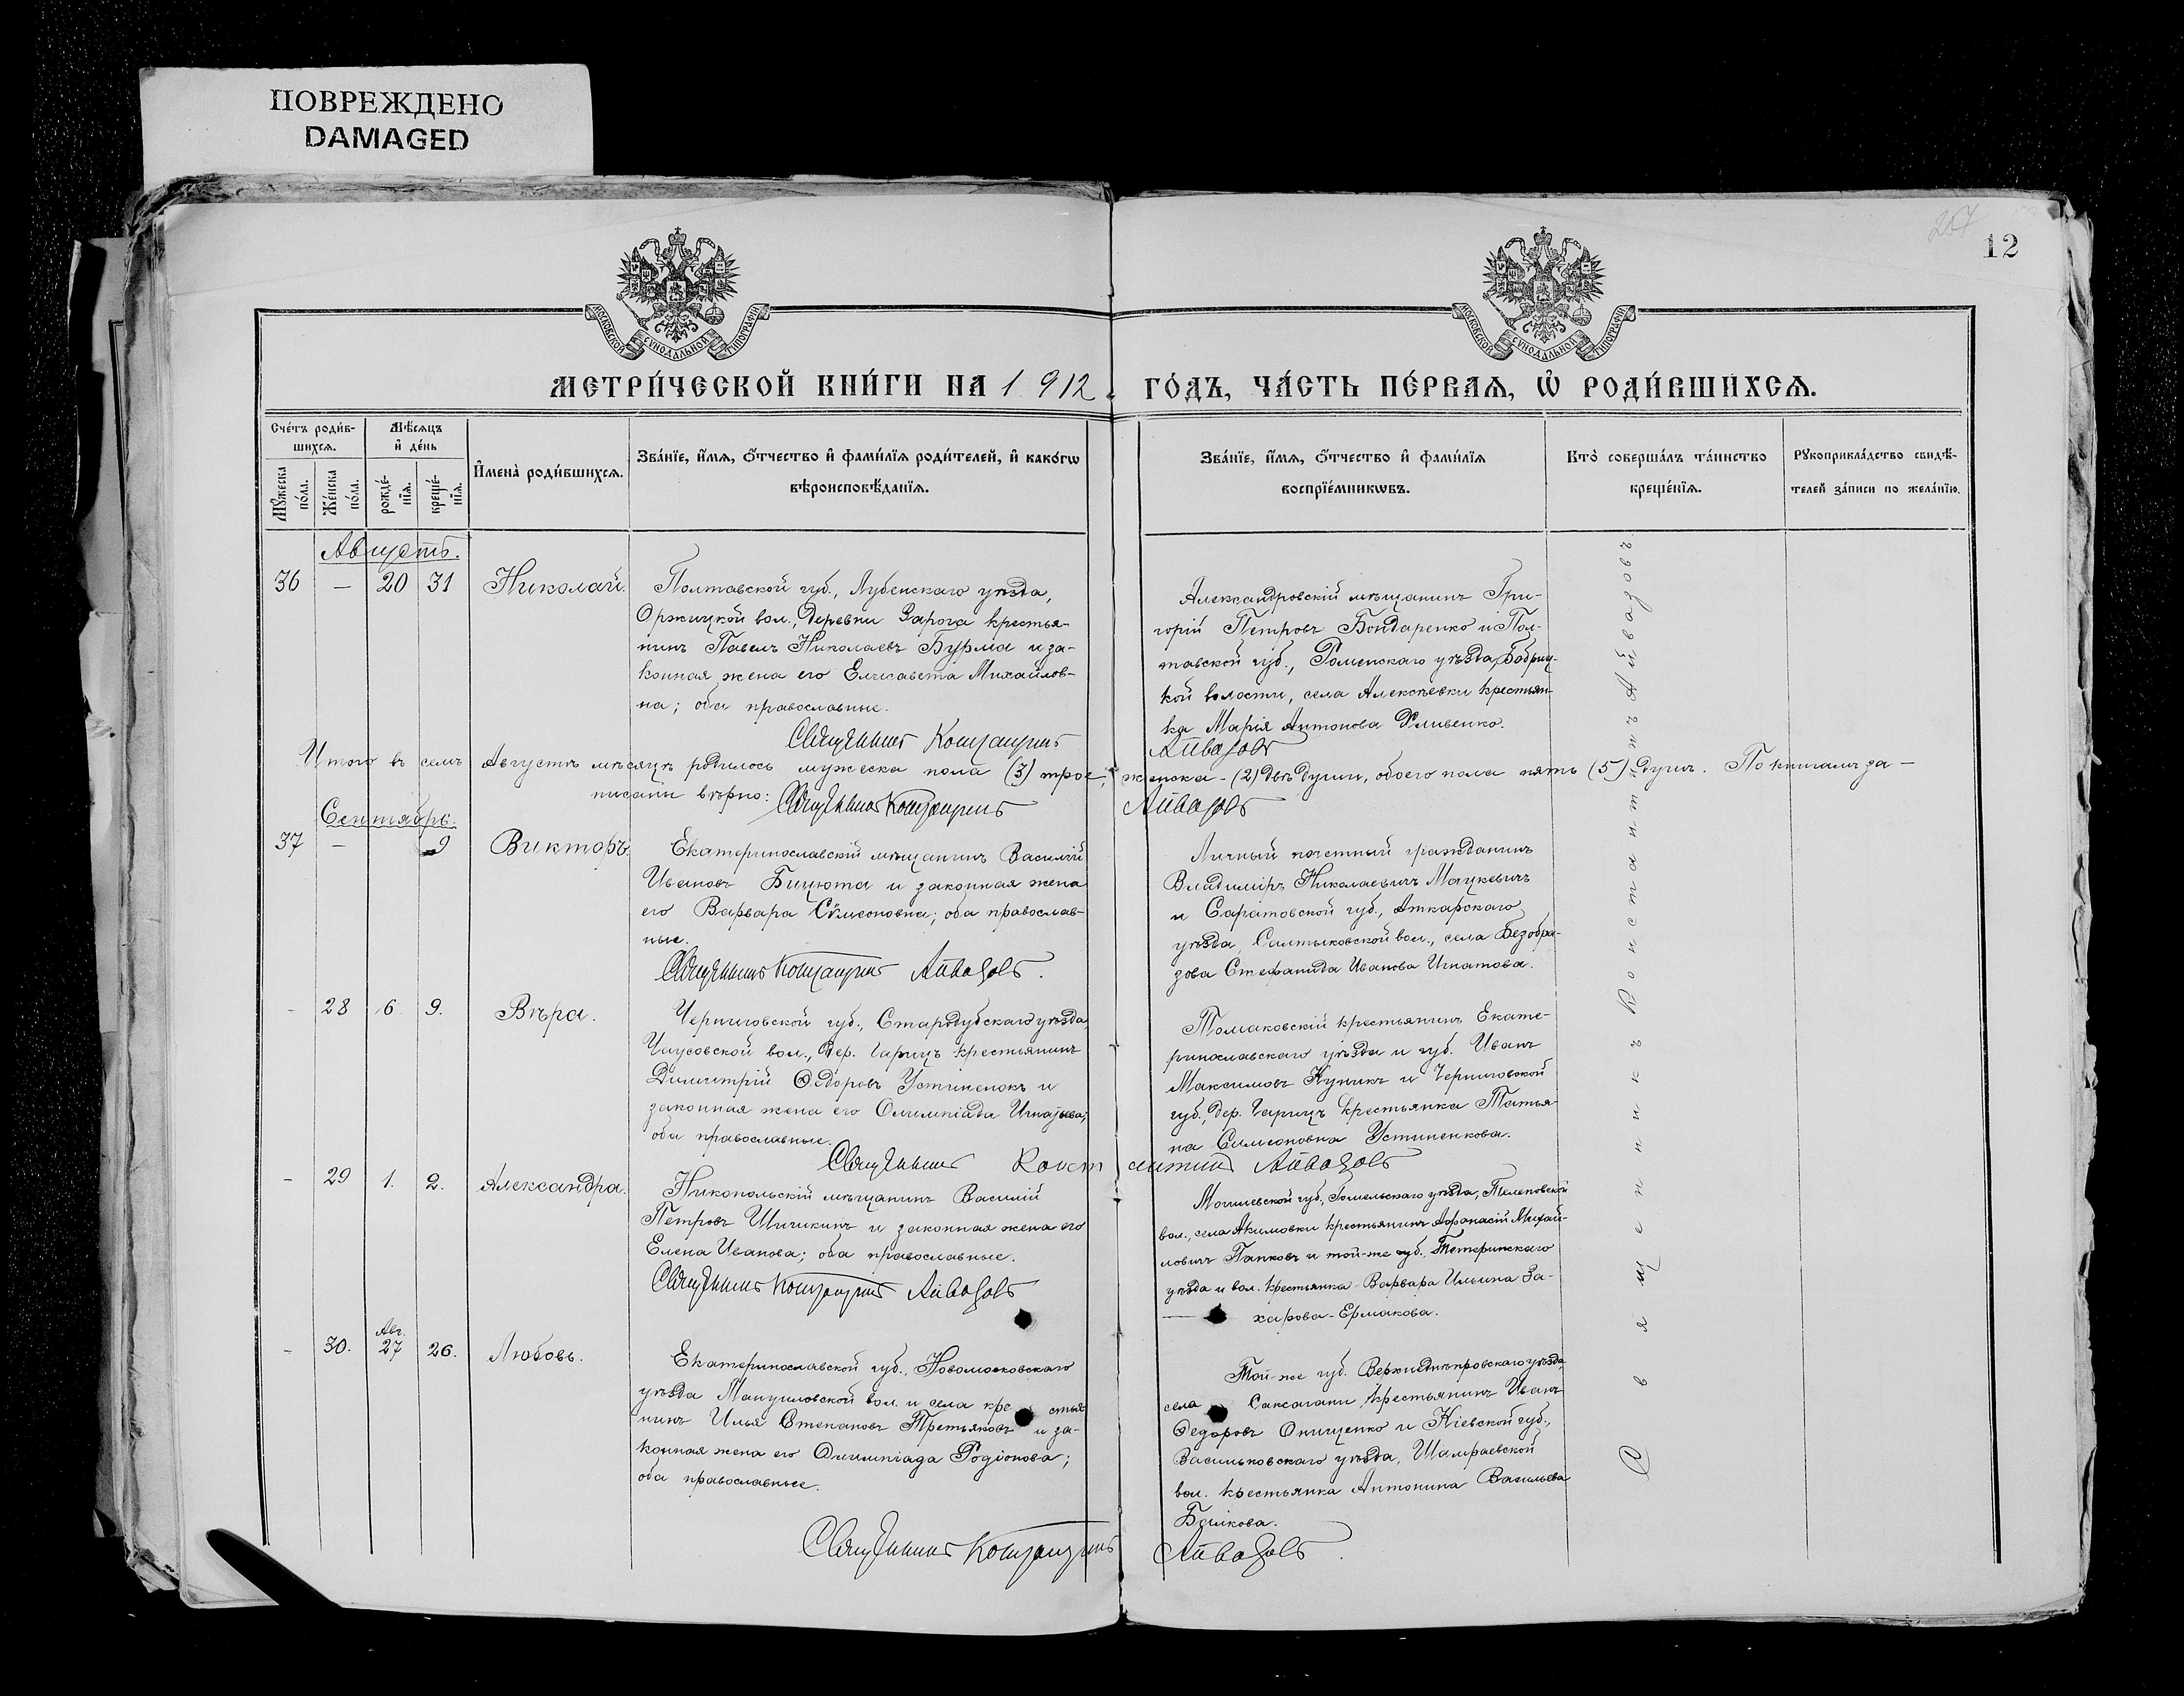 ПОВРЕЖДЕНО
DAMAGED
27
12
МОСКОВСКОЙ СУНОДАЛЬНОЙ ТИПОГРАФІИ
МОСКОВСКОЙ СУНОДАЛЬНОЙ ТИПОГРАФІИ
МЕТРИ́ЧЕСКОЙ КНИ́ГИ НА 1912
ГО́ДЪ, ЧА́СТЬ ПЕ́РВАѦ, Ѡ҆ РОДИ́ВШИХСѦ.
Сче́тъ роди́в-
шихсѧ.
Мѣ́сѧцъ
и҆ де́нь
Мꙋ́жеска
по́ла.
Же́нска
по́ла.
рожде́-
нїѧ.
креще́-
нїѧ.
И҆мена̀ роди́вшихсѧ.
Зва́нїе, и҆́мѧ, ѻ҆́тчество и҆ фами́лїѧ роди́телей, и҆ како́гѡ
вѣроисповѣ́данїѧ.
Зва́нїе, и҆́мѧ, ѻ҆́тчество и҆ фами́лїѧ
воспрїе́мникѡвъ.
Кто̀ соверша́лъ та́инство
креще́нїѧ.
Рꙋкоприкла́дство свидѣ́-
телей за́писи по жела́нїю.
Августъ.
36 — 20 31 Николай.
Полтавской губ., Лубенскаго уѣзда,
Оржицкой вол., деревни Зарога крестья-
нинъ Павелъ Николаевъ Бурма и за-
конная жена его Елисавета Михайлов-
на; оба православные.
Александровскій мѣщанинъ Гри-
горій Петровъ Бондаренко и Пол-
тавской губ., Роменскаго уѣзда, Бобриц-
кой волости, села Алексѣевки крестьян-
ка Марія Антонова Сливенко.
Священникъ Константинъ Айвазовъ
Итого въ семъ Августѣ мѣсяцѣ родилось мужеска пола (3) трое, женска - (2) двѣ души, обоего пола пять (5) душъ. По книгамъ за-
писаны вѣрно: Священникъ Константинъ Айвазовъ
Сентябрь.
37 — 9 Викторъ.
Екатеринославскій мѣщанинъ Василій
Ивановъ Бицюта и законная жена
его Варвара Сѵмеоновна; оба православ-
ные.
Священникъ Константинъ Айвазовъ.
Личный почетный гражданинъ
Владиміръ Николаевичъ Мацкевичъ
и Саратовской губ., Аткарскаго
уѣзда, Салтыковской вол., села Безобра-
зова Стефанида Иванова Игнатова.
- 28 6 9. Вѣра.
Черниговской губ., Стародубскаго уѣзда,
вол., дер. Гарицъ крестьянинъ
Димитрій Ѳедоровъ Устименокъ и
законная жена его Олимпіада
оба православные.
Томаковскій крестьянинъ Екате-
ринославскаго уѣзда и губ. Иванъ
Максимовъ Куникъ и Черниговской
губ., дер. Гарицъ крестьянка Татья-
на Симеоновна Устименкова.
Священникъ Константинъ Айвазовъ
- 29 1. 2. Александра.
Никопольскій мѣщанинъ Василій
Петровъ Шишкинъ и законная жена его
Елена Иванова; оба православные.
Священникъ Константинъ Айвазовъ
Могилевской губ., Гомельскаго уѣзда,
вол., села Акимовки крестьянинъ Афанасій Михай-
ловичъ Папковъ и той-же губ.,
уѣзда и вол. крестьянка Варвара Ильина За-
харова-Ермакова.
- 30. Авг. 27 26. Любовь.
Екатеринославской губ., Новомосковскаго
уѣзда Мануиловской вол. и села крестья-
нинъ Илья Степановъ Третьяковъ и за-
конная жена его Олимпіада Родіонова;
оба православные.
Той-же губ. Верхнеднѣпровскаго уѣзда,
села Саксагани крестьянинъ Иванъ
Ѳедоровъ Онищенко и Кіевской губ.,
Васильковскаго уѣзда, Шамраевской
вол. крестьянка Антонина Васильева
Бойкова.
Священникъ Константинъ Айвазовъ.
Священникъ Константинъ Айвазовъ